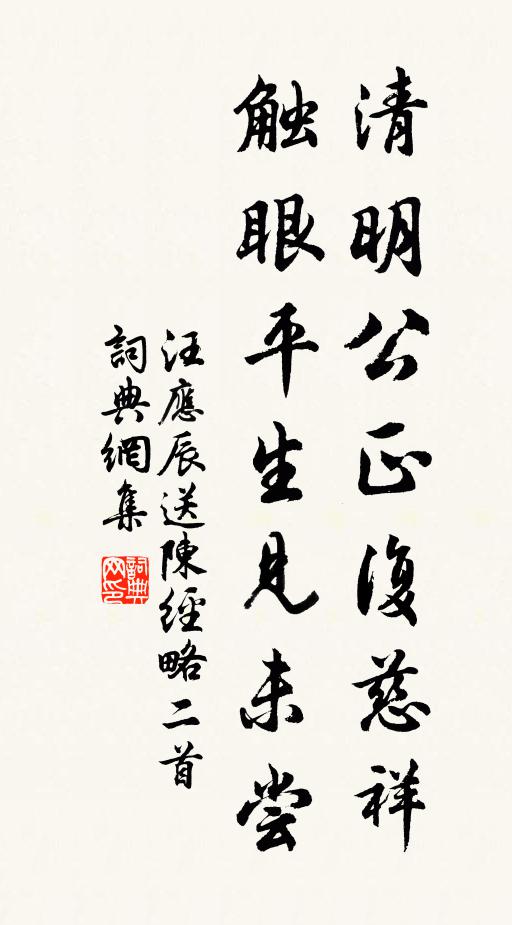 清明公正復慈祥
触眼平生見未嘗
汪應辰送陳經略二首
詞典網集
詞典網印